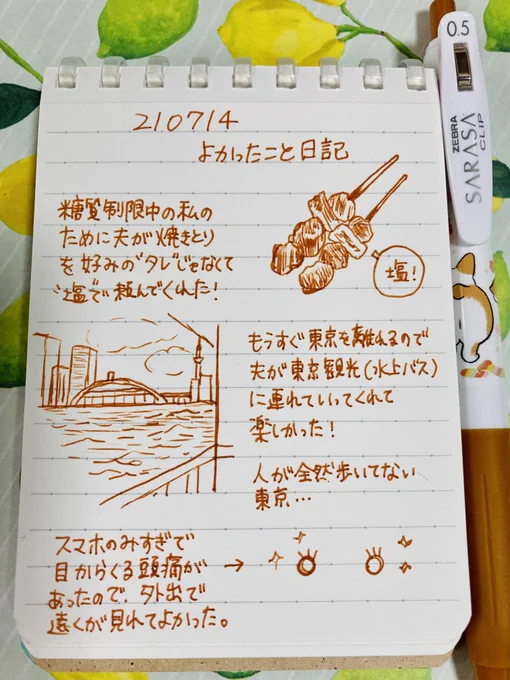 210714
よかったこと日記
糖質制限中の私の
ために夫が焼きとり
を好みの"タレ"じゃなくて
"塩"で頼んでくれた!
塩!
もうすぐ東京を離れるので
夫が東京観光(水上バス)
に連れていってくれて
楽しかった!
人が全然歩いてない
東京…
スマホのみすぎで
目からくる頭痛が
あったので、外出で
遠くが見れてよかった。
→
0.5
ZEBRA
SARASA
CLIP